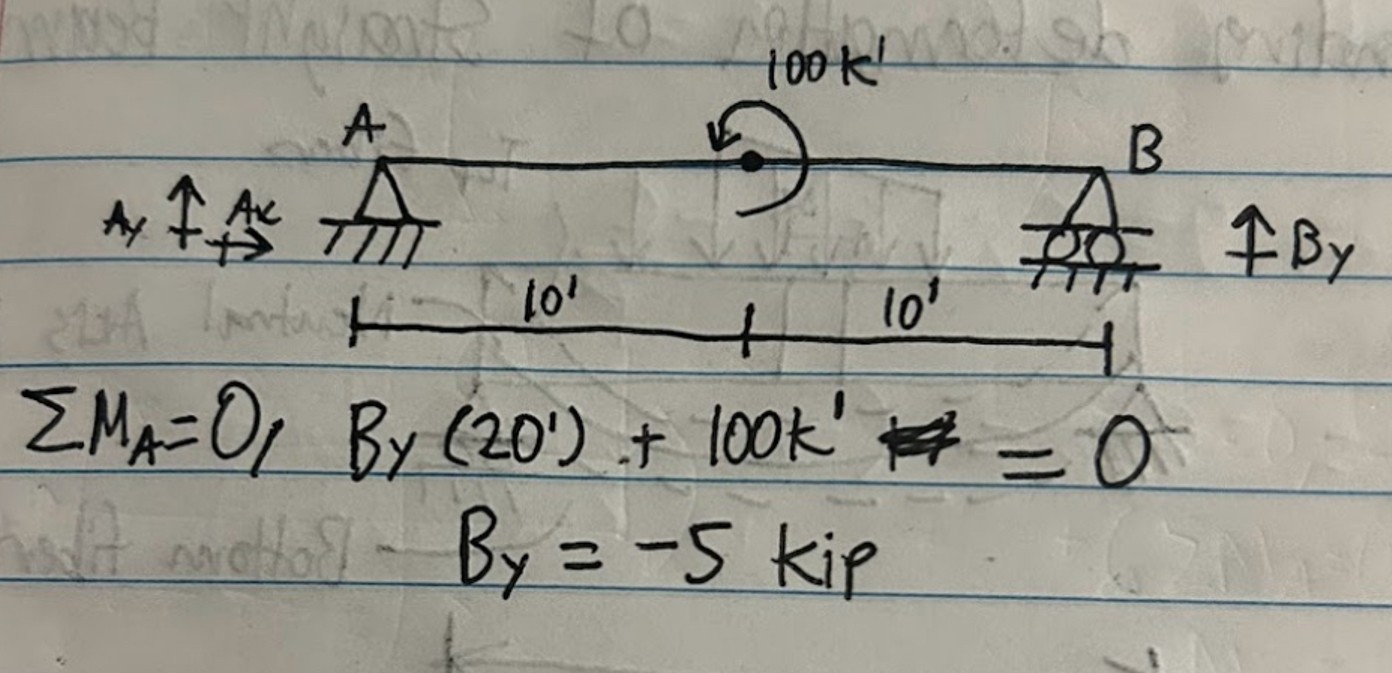 100k'
A
B
Ay Ax
By
10' 10'
ΣM_A=0, By (20') + 100k' = 0
By = -5 kip